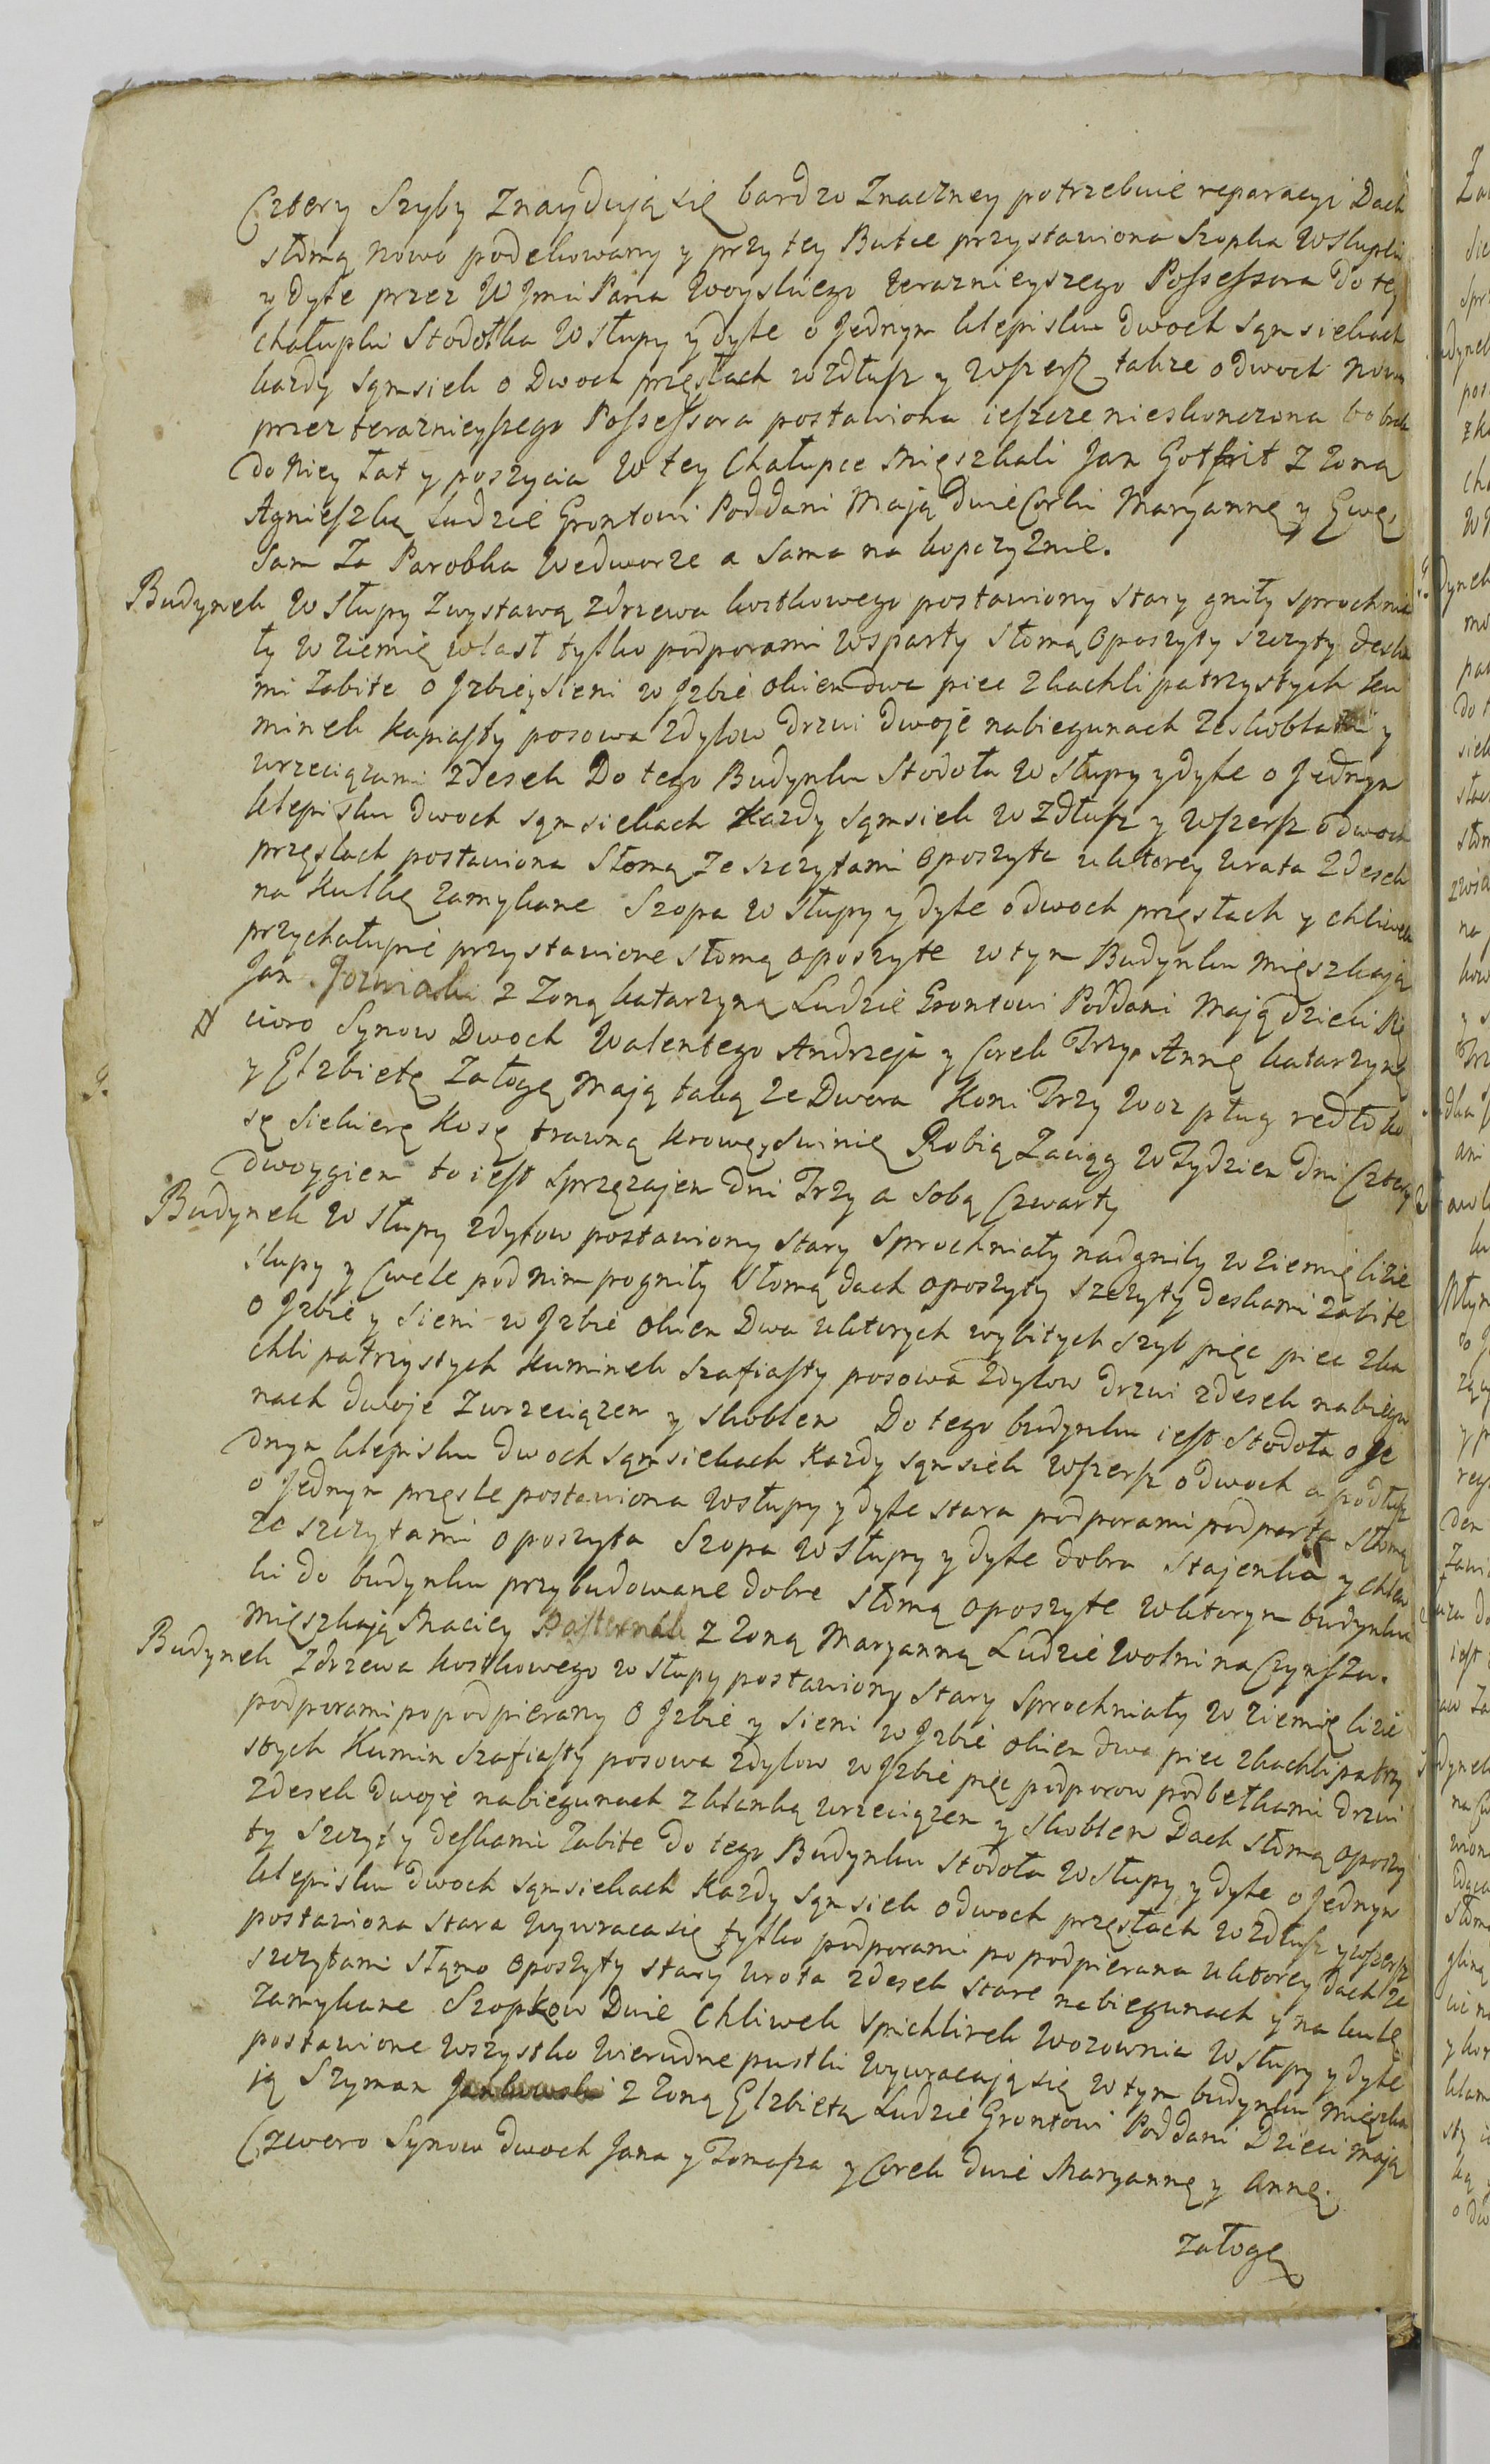 Cztery Szyby Znayduią się bardzo Znaczney potrzebuie reparacyi Dach
słomą nowo podekowany y przy tey Butce przystawiona Szopka w słupki
y dyle przez W Jmci Pana Woyskiego teraznieyszego Possessora do tey
chałupki Stodołka w słupy y dyle o Jednym klepisku dwoch sąmsiekach
kazdy sąmsiek o Dwoch przęsłach wzdłusz y wszersz także o dwoch nowa
przez teraznieyszego Possessora postawiona ieszcze nieskonczona bo brak
do niey łat y poszycia w tey Chałupce Mięszkali Jan Gotfrit z zoną
Agnieszką Ludzie Grontowi Poddani Mają dwie Corki Maryannę y Ewę,
Sam za Parobka we dworze a Sama na kopczyznie.
Budynek w słupy z wystawą z drzewa kostkowego postawiony stary gniły sprochnia
ły w ziemię wlast tylko podporami wsparty słomą oposzyty szczyty deska
mi zabite o Jzbie, sieni w Jzbie okien dwa piec z kachli patrzystych ku
minek kapiasty posowa z dylow drzwi dwoje na biegunach ze skoblami y
wrzeciązami z desek Do tego Budynku Stodoła w słupy y dyle o Jednym
klepisku dwoch sąmsiekach każdy sąmsiek wzdłusz y wszersz o dwoch
przęsłach postawiona słomą ze szczytami oposzyta u ktorey wrota z desek
na kulkę zamykane Szopa w słupy y dyle o dwoch przęsłach y chliwek
przy chałupie przystawione słomą oposzyte w tym Budynku mięszkają
Jan Jozwiak z Zoną Katarzyną Ludzie Grontowi Poddani Mają dzieci Pię
cioro Synow Dwoch Walentego Andrzeja y Corek Trzy Annę Katarzynę
y Elzbietę Załogę Mają taką ze Dwora Koni Trzy woz pług redło ko
sę siekierę kosę trawną krowę, swinię Robią Zaciąg w Tydzien dni Cztery
dwoygiem to iest sprzęzajem dni Trzy a sobą Czwarty
Budynek w słupy z dylow postawiony stary sprochniały nadgniły w ziemię lizie
słupy y Cwele pod nim pogniły słomą dach oposzyty szczyty deskami zabite
o Jzbie y sieni w Jzbie okien Dwa u ktorych wybitych szyb pięc piec z ka
chli patrzystych Kuminek szafiasty posowa z dylow drzwi z desek na biegu
nach dwoje z wrzeciązem y skoblem Do tego budynku iest Stodoła o Je
dnym klepisku dwoch sąmsiekach kazdy sąmsiek wszersz o dwoch a podłusz
o Jednym przęśle postawiona w słupy y dyle stara podporami podparta słomą
ze szczytami oposzyta Szopa w słupy y dyle dobra Stajenka y chlew
ki do budynku przybudowane dobre słomą oposzyte w ktorym budynku
mięszkają Maciey Pasternak z zoną Maryanną Ludzie Wolni na Czynszu.
Budynek z drzewa kostkowego w słupy postawiony stary sprochniały w ziemię lizie
podporami popodpierany o Jzbie y sieni w Jzbie okien dwa piec z kachli patrzy
stych Kumin szafiasty posowa z dylow w Jzbie pięc podporow pod belkami drzwi
z desek dwoje na biegunach z klamką wrzeciązem y skoblem Dach słomą oposzy
ty szczyty deskami zabite do tego Budynku stodoła w słupy y dyle o Jednym
klepisku dwoch sąmsiekach Kazdy sąmsiek o dwoch przęsłach wzdłusz y wszersz
postawiona stara wywraca się tylko podporami popodpierana u ktorey dach ze
szczytami słąmo oposzyty stary wrota z desek stare na biegunach y na kulkę
zamykane Szopkow Dwie Chliwek spichlirek wozownia w słupy y dyle
postawione wszystko wierudne pustki wywracają się w tym budynku mięszka
ią Szyman Jankowski z zoną Elzbietą Ludzie Grontowi Poddani Dzieci mają
Czworo Synow dwoch Jana y Tomasza y Corek dwie Maryannę y Annę.
Załogę